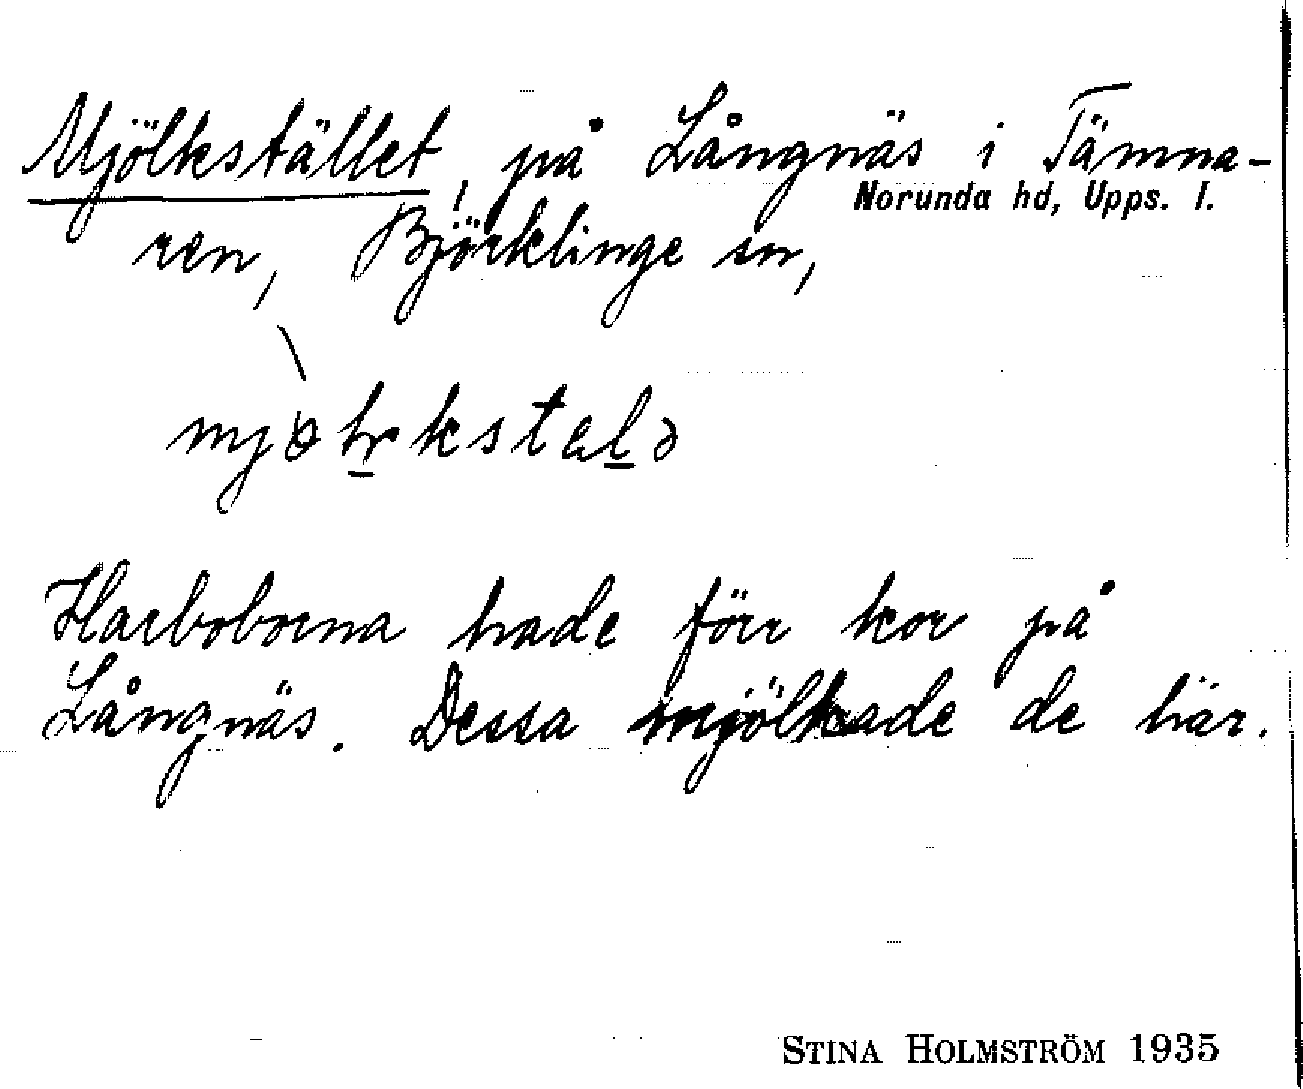 Mjölkstället, på Långnäs i Tämna-
Norunda hd, Upps. l.
ren, Björklinge sn,
Harboborna hade förr kor på
Långnäs. Dessa mjölkade de här.
STINA HOLMSTRÖM 1935